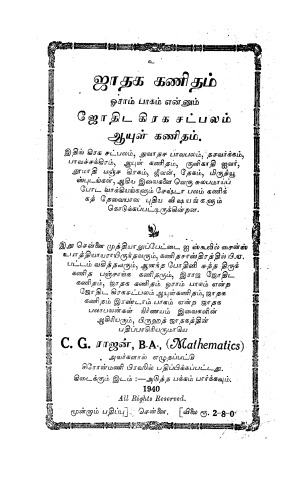 உ
ஜாதக கணிதம்
ஓராம் பாகம் என்னும்
ஜோதிட கிரக சட்பலம்
ஆயுள் கணிதம்.
இதில் கிரக சட்பலம், அவாதச பாவபலம், தசவர்க்கம்,
பாவச்சக்கிரம், ஆயுள் கணிதம், குளிகாதி ஐவர்,
தூமாதி பஞ்ச கிரகம், ஜீவன், தேகம், மிருத்யு
ஸ்புடங்கள், ஆகிய இவைகளை வெகு சுலபமாகப்
போட வாக்கியங்களும் சேஷ்டா பலம் கணிக்
கத் தேவையான புதிய விஷயங்களும்
கொடுக்கப்பட்டிருக்கின்றன.
இது சென்னை முத்தியாலுப்பேட்டை ஐ ஸ்கூலில் சைன்ஸ்
உபாத்தியாயராயிருந்தவரும், கணிதசாஸ்திரத்தின் பி.ஏ.
பட்டம் வகித்தவரும், ஆனந்த போதினி சுத்த திருக்
கணித பஞ்சாங்க கணிதரும், இராஜ ஜோதிட
கணிதம், ஜாதக கணிதம் ஓராம் பாகம் என்ற
ஜோதிட கிரகசட்பலம் ஆயுள்கணிதம், ஜாதக
கணிதம் இரண்டாம் பாகம் என்ற ஜாதக
பலாபலன்கள் நிர்ணயம் இவைகளின்
ஆசிரியரும், பிருஹத் ஜாதகத்தின்
பதிப்பாசிரியருமாகிய
C. G. ராஜன், B.A., (Mathematics)
அவர்களால் எழுதப்பட்டு
கிரோன்மணி பிரஸில் பதிப்பிக்கப்பட்டது.
கிடைக்கும் இடம் :—அடுத்த பக்கம் பார்க்கவும்.
1940
All Rights Reserved.
மூன்றும் பதிப்பு] சென்னை. [விலை ரூ. 2-8-0